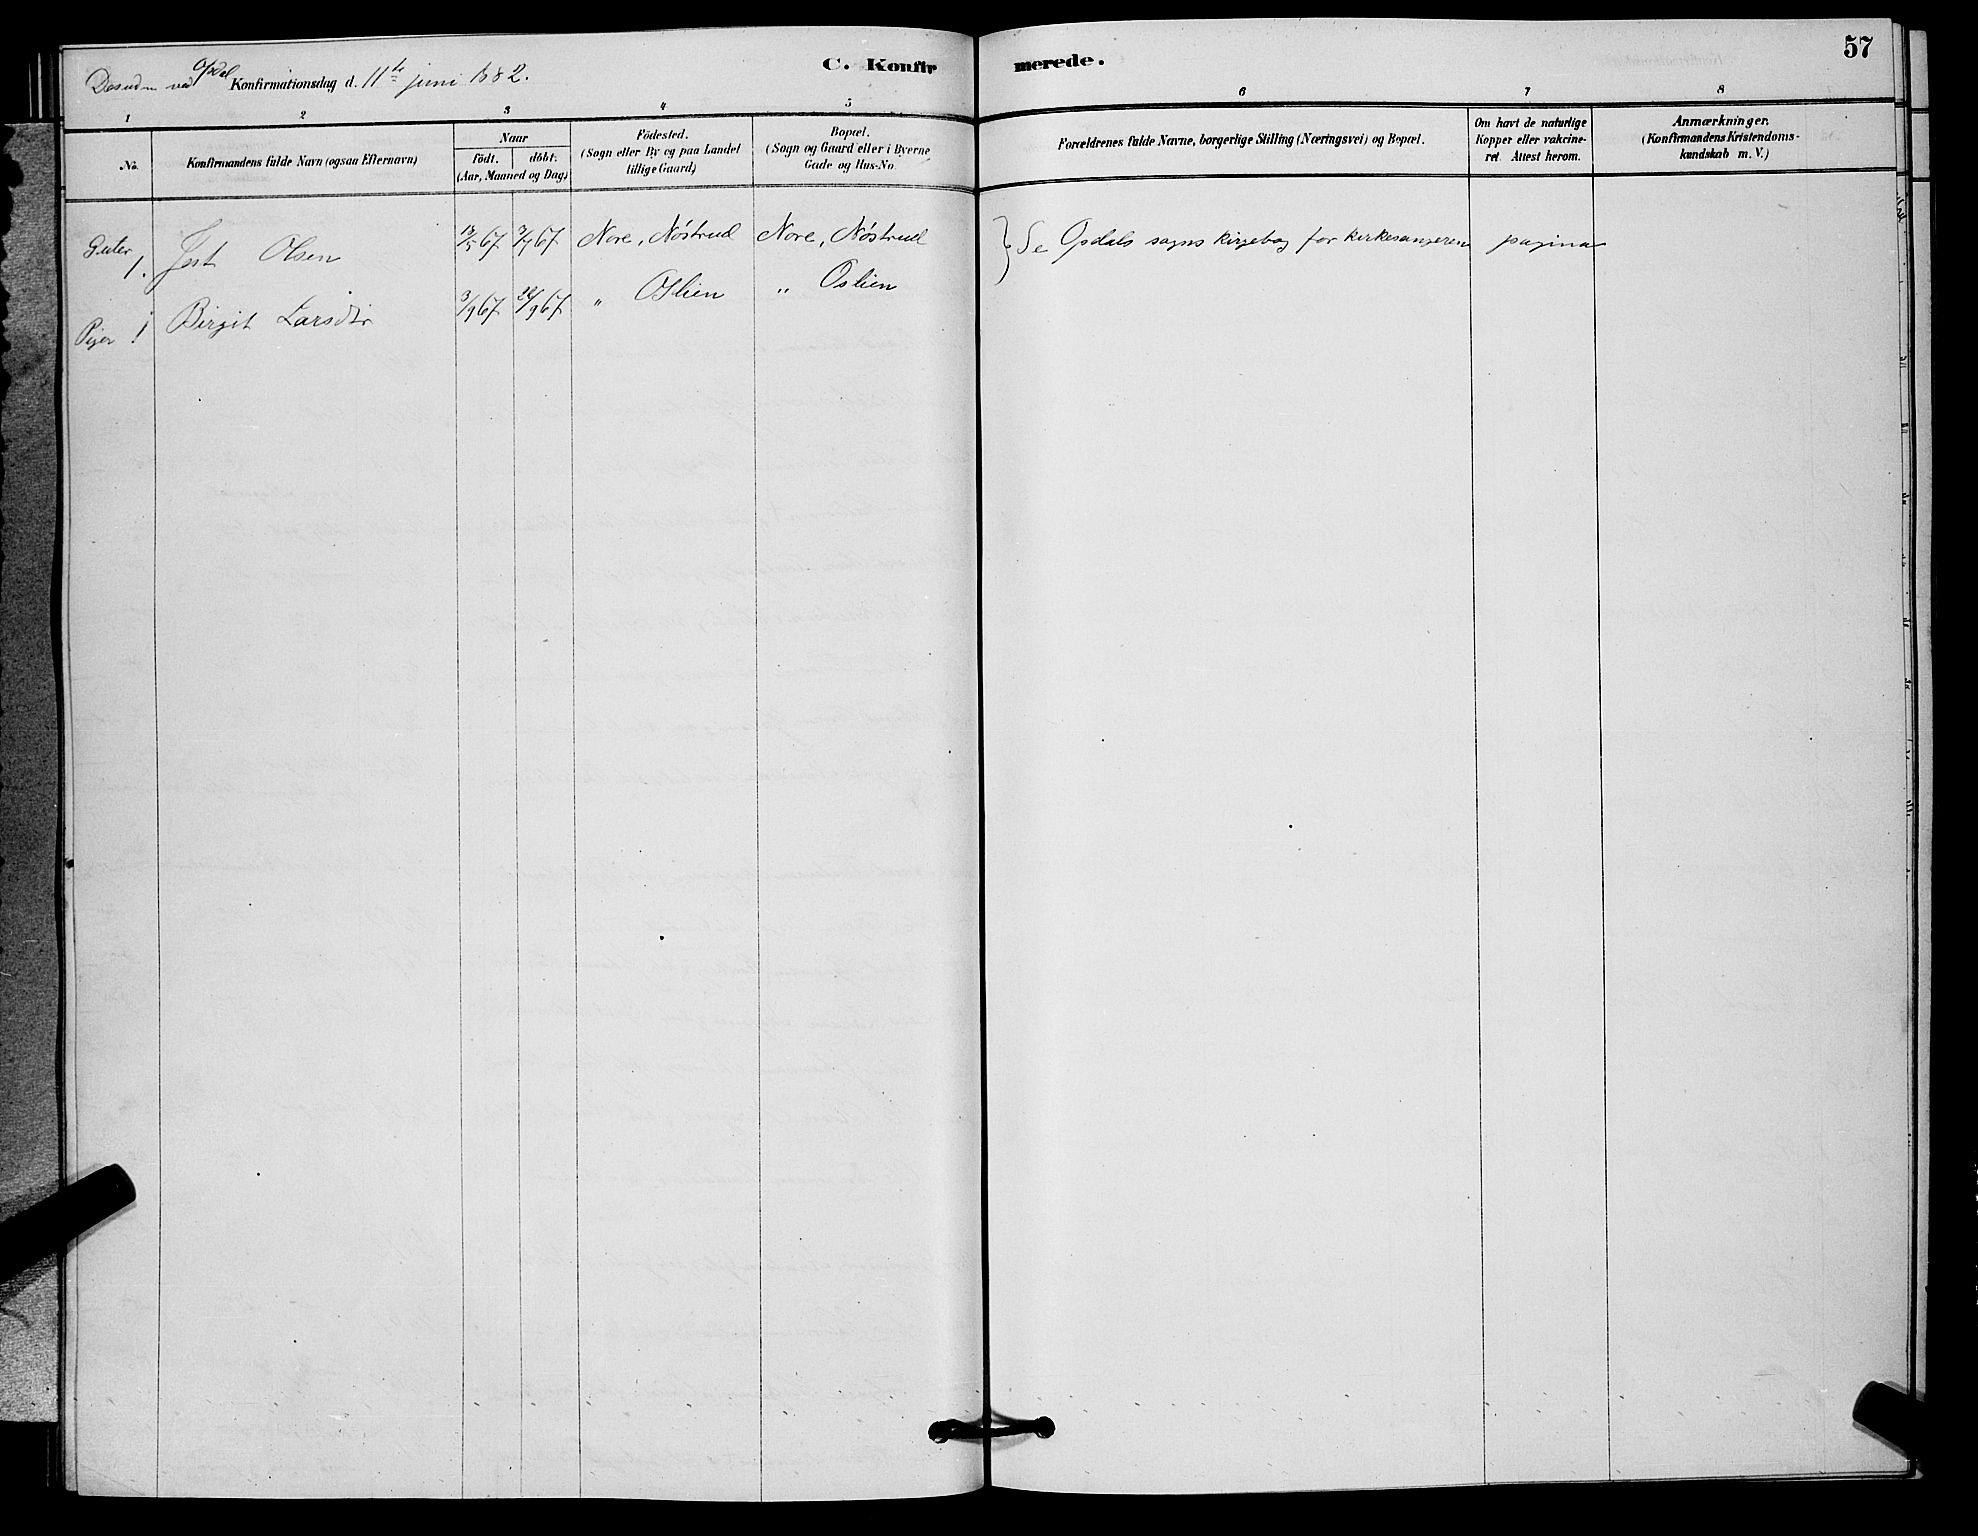 C. Konfirmerede.
57
Desuden ved Opdal Konfirmationsdag d. 11te juni 1882.
1 2 3 4 5 6 7 8
No.
Konfirmandens fulde Navn (ogsaa Efternavn)
Naar
födt. döbt.
(Aar, Maaned og Dag)
Födested.
(Sogn eller By og paa Landet
tillige Gaard)
Bopæl.
(Sogn og Gaard eller i Byerne
Gade og Hus-No.
Forældrenes fulde Navne, borgerlige Stilling (Næringsvei) og Bopæl.
Om havt de naturlige
Kopper eller vakcine-
ret. Attest herom.
Anmærkninger.
(Konfirmandens Kristendoms-
kundskab m. V.)
Gutter
1. Jost Olsen 13/5 67 7/7 67 Nore, Nöstrud Nore, Nöstrud } Se Opdals sogns kirgebog for kirkesangeren pagina
Piger 1 Birgit Larsdtr 3/9 67 22/9 67 " Oslien " Oslien